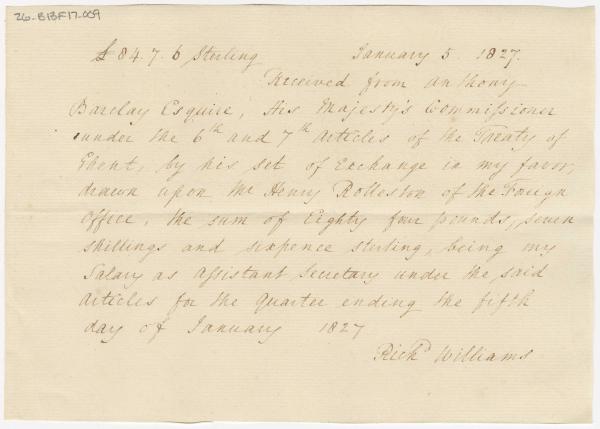 26-B13F17-009
£84.7.6 Sterling January 5. 1827.
Received from Anthony
Barclay Esquire, His Majesty's Commissioner
under the 6th and 7th Articles of the Treaty of
Ghent, by his set of Exchange in my favor,
drawn upon Mr Henry Rolleston of the Foreign
Office, the sum of Eighty four pounds, seven
shillings and sixpence sterling, being my
Salary as Assistant Secretary under the said
Articles for the Quarter ending the fifth
day of January 1827
Richd Williams